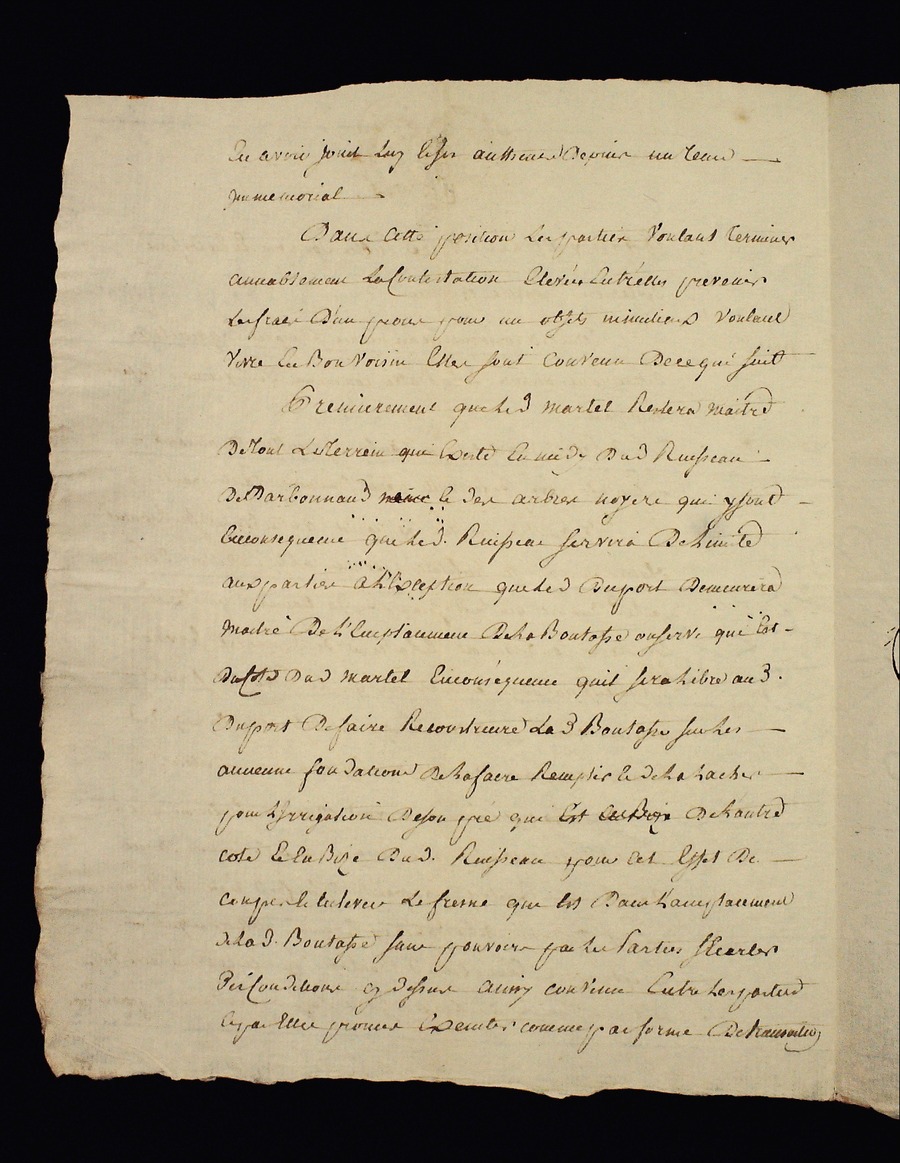 En avoir jouit luy et ses autheurs Depuis un Tems
immemorial
Dans Cette position Les parties Voulant Terminer
amiablement La Contestation Elevée Entrelles prevenir
Les frais D'un proces pour un objets minutieux Voulant
Vivre En Bon Voisin Elles sont Convenu De ce qui suit
Premierement que Led martel Restera maitre
De Tout Le Terrein qui Existe En midy Dud Ruisseau
De Darbonnaud et des arbres noyers qui y sont
En consequence que Led. Ruisseau servira De Limite
aux parties a L'Exception que Led Duport Demeurera
maitre De L'Emplacement De La Boutasse qui Est
Du Coté Dud martel En conséquence quil sera Libre aud.
Duport De faire Reconstruire Lad Boutasse sur Les
ancienne fondations De La faire Remplir et de La Lacher
pour L'irrigation De son pré qui Est De Lautre
coté et En Bize Dud. Ruisseau pour cet Effet De
couper et enlever Le fresne qui Est Dans L'amplacement
de Lad. Boutasse sans pouvoir par Les Parties s'Ecarter
Des Conditions cy dessus ainsy convenu Entre Les parties
et par Elles promis Executer comme par forme De transaction